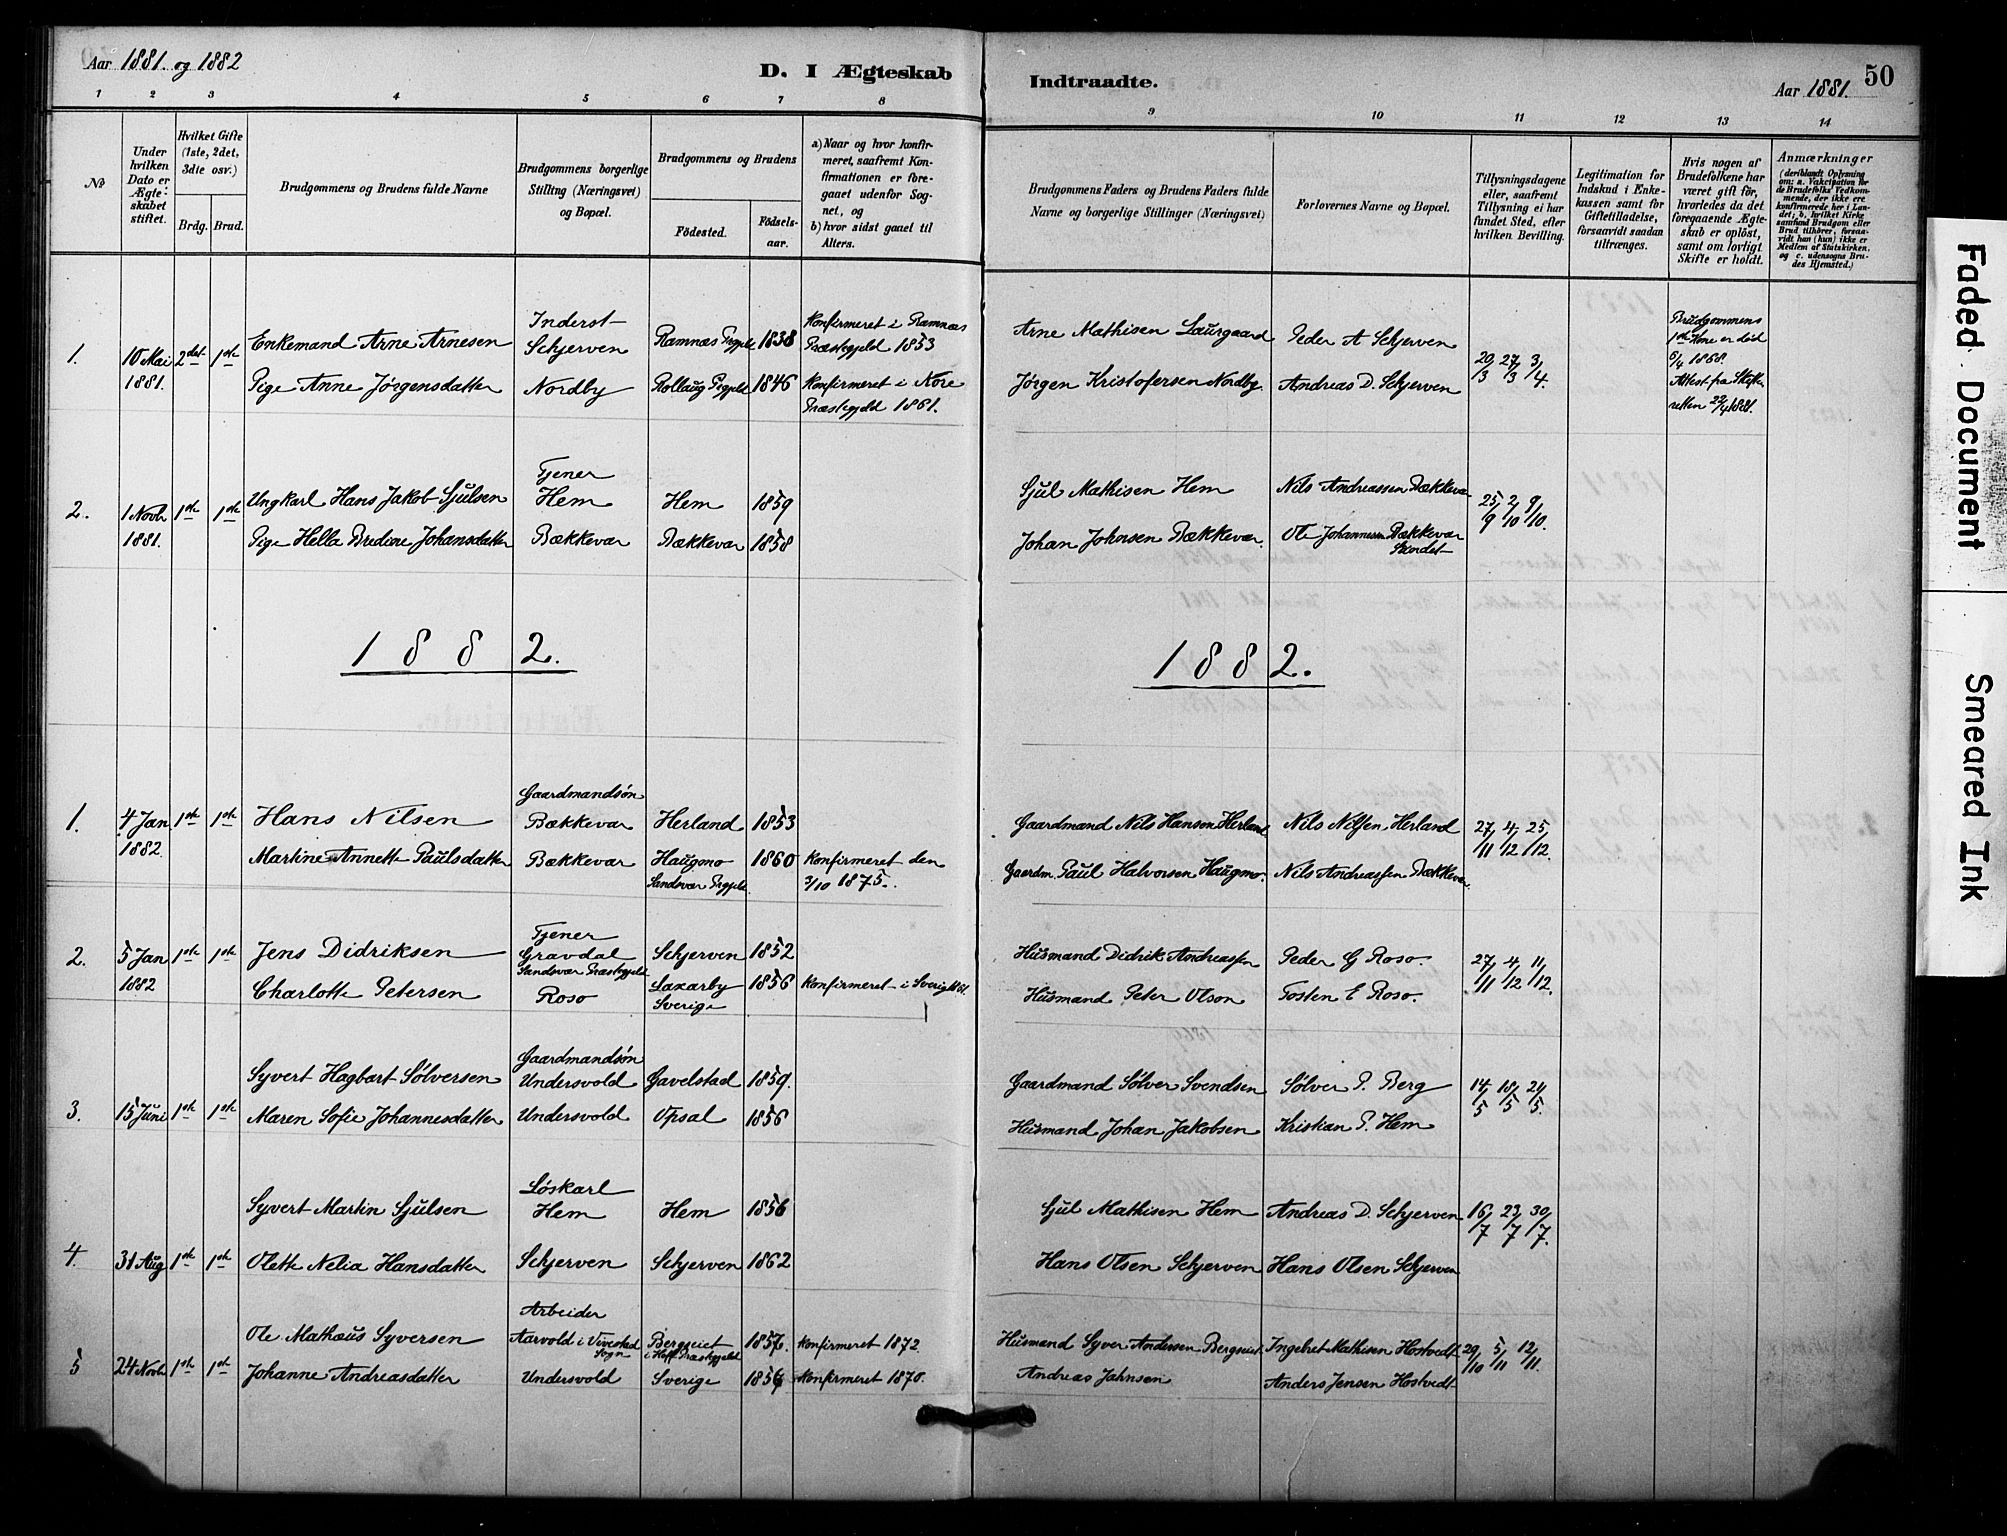 Aar 1881. og 1882
D. I Ægteskab Indtraadte.
Aar 1881. 50
1 2 3 4 5 6 7 8 9 10 11 12 13 14
No
Under hvilken Dato er Ægteskabet stiftet.
Hvilket Gifte (1ste, 2det, 3die osv.)
Brdg. Brud.
Brudgommens og Brudens fulde Navne
Brudgommens borgerlige Stilling (Næringsvei) og Bopæl.
Brudgommens og Brudens
Fødested. Fødselsaar.
a) Naar og hvor konfirmeret, saafremt Konfirmationen er foregaaet udenfor Sognet, og
b) hvor sidst gaaet til Alters.
Brudgommens Faders og Brudens Faders fulde Navne og borgerlige Stillinger (Næringsvei)
Forlovernes Navne og Bopæl.
Tillysningsdagene eller, saafremt Tillysning ei har fundet Sted, efter hvilken Bevilling.
Legitimation for Indskud i Enkekassen samt for Giftetilladelse, forsaavidt saadan tiltrænges.
Hvis nogen af Brudefolkene har været gift før, hvorledes da det foregaaende Ægteskab er opløst, samt om lovligt Skifte er holdt.
Anmærkninger
(deriblandt Oplysning om: a. Vakcination for de Brudefolks Vedkommende, der ikke ere konfirmerede her i Landet; b. hvilket Kirkesamfund Brudgom eller Brud tilhører, forsaavidt han (hun) ikke er Medlem af Statskirken, og c. udensogns Brudes Hjemsted.)
1. 10 Mai 1881. 2det 1ste
Enkemand Arne Arnesen Inderst Schjerven Ramnæs Prgjeld 1838 Konfirmeret i Ramnæs Præstegjeld 1853
Arne Mathisen Laursgaard Peder A Schjerven 20/3 27/3 3/4.
Brudgommens 1ste Kone er død 5/4 1868. Attest fra Skifteretten 22/4 1881.
Pige Anne Jørgensdatter Nordby Rollaug Prgjeld 1846 Konfirmeret i Nore Præstegjeld 1861.
Jørgen Kristofersen Nordby. Andreas D. Schjerven
2. 1 Novb 1881. 1ste 1ste
Ungkarl Hans Jakob Sjulsen Tjener Hem Hem 1859
Sjul Mathisen Hem Nils Andreassen Bækkevar 25/9 2/10 9/10.
Pige Hella Bredine Johansdatter Bækkevar Bækkevar 1858
Johan Johnsen Bækkevar. Ole Johannesen Bækkevar
1882. 1882.
1. 4 Jan 1882. 1ste 1ste
Hans Nilsen Gaardmandsøn Bækkevar Herland 1853
Gaardmand Nils Hansen Herland Nils Nilsen Herland 27/11 4/12 25/12.
Martine Annette Paulsdatter Bækkevar Haugmo Sandsvær Prgjeld. 1860 Konfirmeret den 3/10 1875.
Gaardm. Paul Halvorsen Haugmo. Nils Andreassen Bækkevar
2. 5 Jan 1882 1ste 1ste
Jens Didriksen Tjener Gravdal Sandsvær Præstegjeld Schjerven 1852
Husmand Didrik Andreassen Peder G Roso. 27/11 4/12 11/12.
Charlotte Petersen Roso Laxarby Sverige 1856 Konfirmeret i Sverige
Husmand Peter Olson Tosten E Roso.
3. 15 Juni 1ste 1ste
Syvert Hagbart Sølversen Gaardmandsøn Undersvold Gavelstad 1859.
Gaardmand Sølver Svendsen Sølver P. Berg 14/5 18/5 21/5.
Maren Sofie Johannesdatter Undersvold Opsal 1856
Husmand Johan Jakobsen Kristian P. Hem
4. 31 Aug 1ste 1ste
Syvert Martin Sjulsen Løskarl Hem Hem 1856
Sjul Mathisen Hem Andreas D. Schjerven 16/7 23/7 30/7.
Olette Nelia Hansdatter Schjerven Schjerven 1862
Hans Olsen Schjerven Hans Olsen Schjerven
5 24 Novb 1ste 1ste
Ole Mathæus Syversen Arbeider Aarvold i Vivestad Sogn Bergseiet i Hoff Præstegjeld 1857. Konfirmeret 1872
Husmand Syver Andersen Bergseiet. Ingebret Mathisen Hostvedt 29/10 5/11 12/11.
Johanne Andreasdatter Undersvold Sverige Konfirmeret 1870.
Andreas Jahnsen Anders Jensen Hostvedt
Faded Document
Smeared Ink